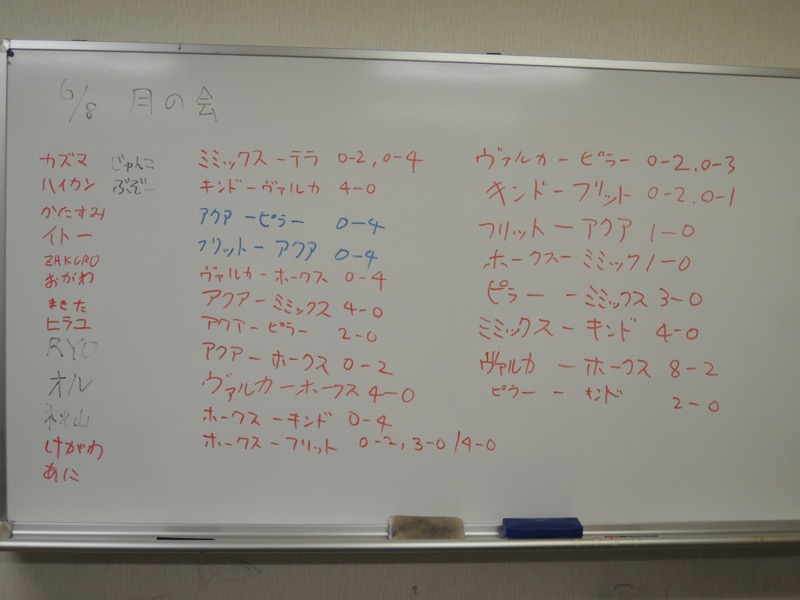 6/8 月の会
カズマ じゅんこ
ハイカン ぶぞー
かたすみ
イトー
ZAKURO
おがわ
まきた
ヒラユ
RYO
オル
秋山
けがわ
あに
ミミックス－テラ 0-2, 0-4
キンドーヴァルカ 4-0
アクアーピラー 0-4
フリットーアクア 0-4
ヴァルカーホークス 0-4
アクアーミミックス 4-0
アクアーピラー 2-0
アクアーホークス 0-2
ヴァルカーホークス 4-0
ホークスーキンド 0-4
ホークスーフリット 0-2, 3-0/4-0
ヴァルカーピラー 0-2, 0-3
キンドーフリット 0-2, 0-1
フリットーアクア 1-0
ホークスーミミック 1-0
ピラー－ミミックス 3-0
ミミックス－キンド 4-0
ヴァルカ－ホークス 8-2
ピラー－キンド 2-0